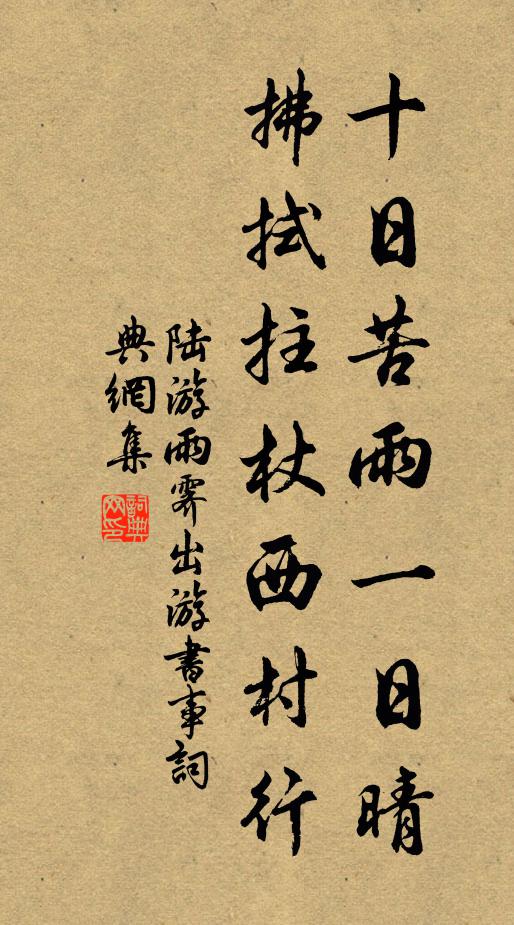 十日苦雨一日晴
拂拭拄杖西村行
陆游雨霁出游書事詞
典網集
詞典
网印